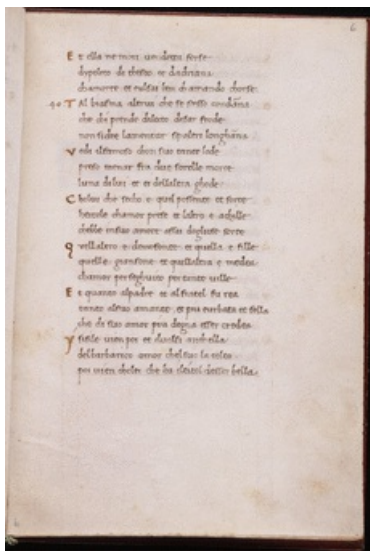 6
E t ella ne mori vendetta forse
dypolito di theseo et dadriana
cha morte et tulsai ben chamando chorse
T al biasma altrui che se stesso condāna
che chi prende dilecto di far frode
non si de lamentar saltri longhāna
V edi alfamoso chon sua tanta lode
preso menar fra due sorelle morte
luna di lui et ei dellaltra ghode
C holui che secho e quel possente et forte
hercole chamor prese et laltro e achille
chebbe in suo amore assai dogliose sorte
Q uellaltro e demofonte et quella e fille
quelle giansone et quellaltra e medea
chamor per tante ville
E t quanto alpadre et al fratel fu rea
tanto alsuo amante et piu turbata et fella
che di suo amor piu degna esser credea
Y sifile vien poi et duolsi anchella
del barbarico amor chel suo la tolto
poi vien cholei che ha titol desser bella